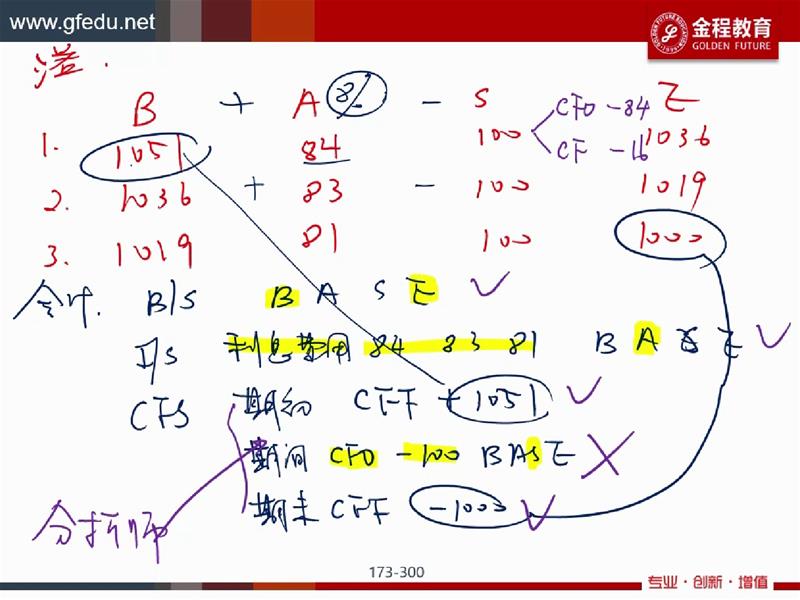 www.gfedu.net
金程教育
GOLDEN FUTURE
溢.
B + A 8% - S E
1. 1051 84 100 CFO -84 1036
CF -16
2. 1036 + 83 - 100 1019
3. 1019 81 100 1000
会计. B/S B A S E ✓
I/S 利息费用 84 83 81 B A S E ✓
CFS 期初 CFF + 1051 ✓
期间 CFO -100 BASE ✗
分析师 期末 CFF -1000 ✓
173-300
专业·创新·增值